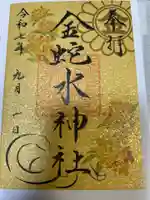 奉拝
金蛇水神社
令和七年九月一日